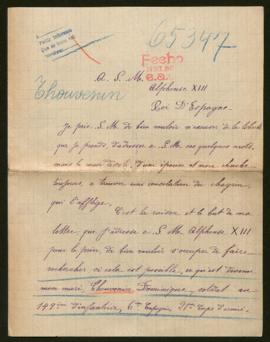 65347
Fecho
A. S. M.
Alphonse XIII
Roi D'Espagne
Thouvenin
Je prie S. M. de bien vouloir m'excuser de la liberté
que je prends, d'adresser à S. M. ces quelques mots,
mais le cœur d'une épouse et mère cherche
toujours à trouver une consolation du chagrin
qui l'afflige.
C'est la raison et le but de ma
lettre, que j'adresse à S. M. Alphonse XIII
pour le prier, de bien vouloir s'occuper de faire
rechercher si cela est possible, ce qu'est devenu
mon mari, Thouvenin Dominique, soldat au
149ème d'infanterie, 6me Compagnie, 21me Corps d'armée.